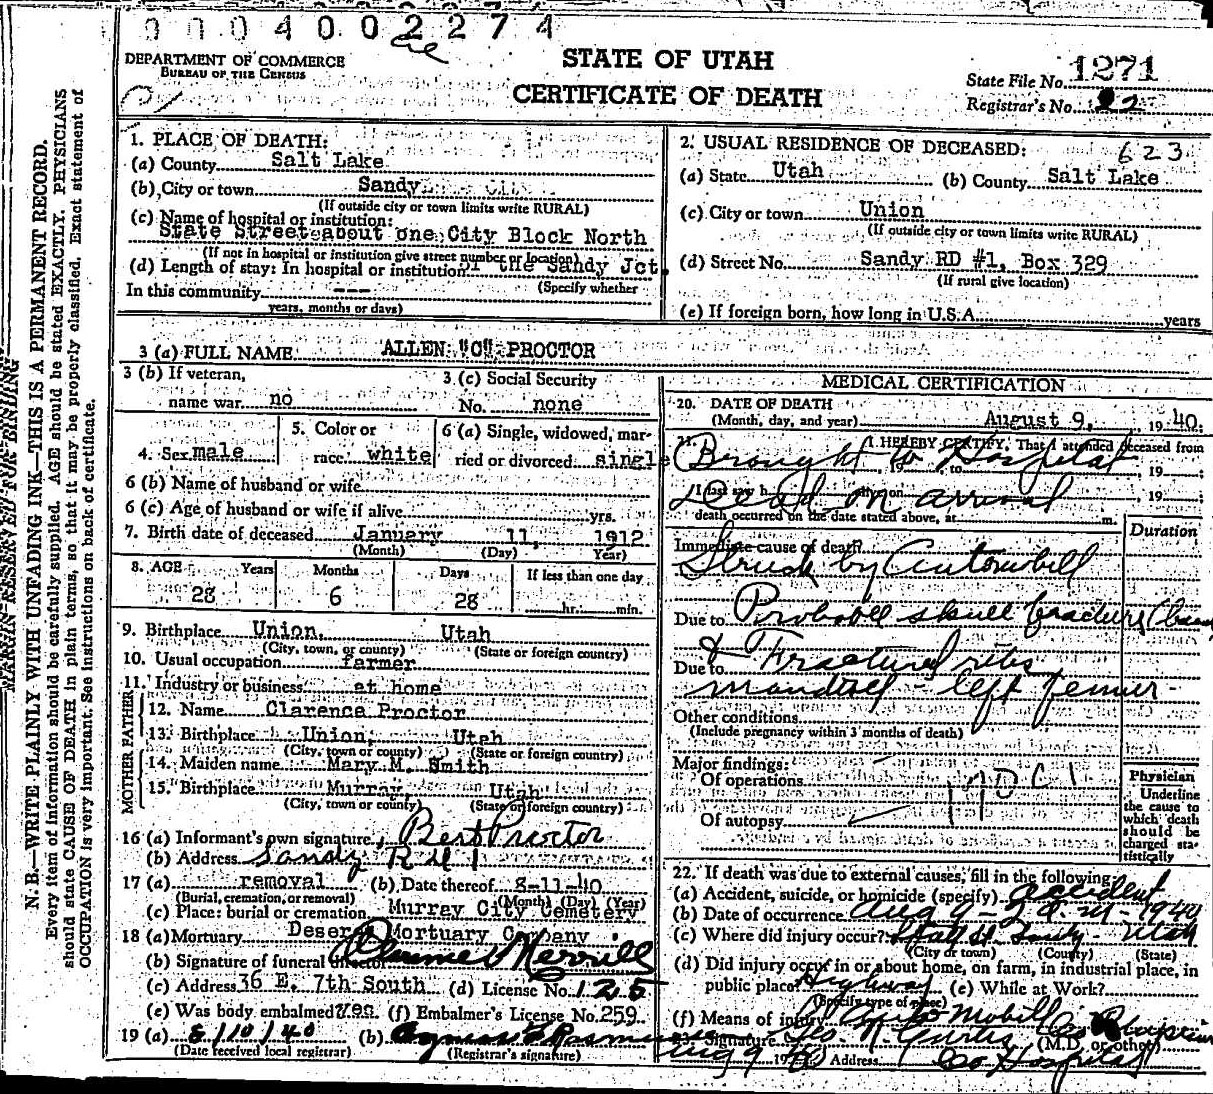 0004002274
DEPARTMENT OF COMMERCE
BUREAU OF THE CENSUS
STATE OF UTAH
CERTIFICATE OF DEATH
State File No. 1271
Registrar's No. 22
MARGIN RESERVED FOR BINDING
N. B.—WRITE PLAINLY WITH UNFADING INK—THIS IS A PERMANENT RECORD.
Every item of information should be carefully supplied. AGE should be stated EXACTLY. PHYSICIANS
should state CAUSE OF DEATH in plain terms, so that it may be properly classified. Exact statement of
OCCUPATION is very important. See instructions on back of certificate.
1. PLACE OF DEATH:
(a) County Salt Lake
(b) City or town Sandy
(If outside city or town limits write RURAL)
(c) Name of hospital or institution:
State Street about one City Block North
(If not in hospital or institution give street number or location)
of the Sandy Jct.
(d) Length of stay: In hospital or institution
(Specify whether
In this community ---
years, months or days)
2. USUAL RESIDENCE OF DECEASED: 623
(a) State Utah (b) County Salt Lake
(c) City or town Union
(If outside city or town limits write RURAL)
(d) Street No. Sandy RD #1, Box 329
(If rural give location)
(e) If foreign born, how long in U.S.A. years
3 (a) FULL NAME ALLEN "C" PROCTOR
3 (b) If veteran,
name war no
3 (c) Social Security
No. none
4. Sex male
5. Color or
race white
6 (a) Single, widowed, mar-
ried or divorced single
6 (b) Name of husband or wife
6 (c) Age of husband or wife if alive yrs.
7. Birth date of deceased January 11, 1912
(Month) (Day) (Year)
8. AGE Years Months Days If less than one day
28 6 28 hr. min.
9. Birthplace Union, Utah
(City, town, or county) (State or foreign country)
10. Usual occupation farmer
11. Industry or business at home
FATHER
12. Name Clarence Proctor
13. Birthplace Union, Utah
(City, town or county) (State or foreign country)
MOTHER
14. Maiden name Mary M. Smith
15. Birthplace Murray, Utah
(City, town or county) (State or foreign country)
16 (a) Informant's own signature Bert Proctor
(b) Address Sandy R D 1
17 (a) removal (b) Date thereof 8-11-40
(Burial, cremation, or removal) (Month) (Day) (Year)
(c) Place: burial or cremation Murray City Cemetery
18 (a) Mortuary Deseret Mortuary Company
(b) Signature of funeral director Merrill
(c) Address 36 E. 7th South (d) License No. 125
(e) Was body embalmed? yes (f) Embalmer's License No. 259
19 (a) 8/10/40 (b)
(Date received local registrar) (Registrar's signature)
MEDICAL CERTIFICATION
20. DATE OF DEATH
(Month, day, and year) August 9, 1940
21. I HEREBY CERTIFY, That I attended deceased from
Brought to Hospital
to 19
I last saw h on 19
Dead on arrival
death occurred on the date stated above, at m.
Duration
Immediate cause of death
Struck by Automobill
Due to Probabl skull fracture
& Fractured ribs
Due to
mandrel - left femur -
Other conditions
(Include pregnancy within 3 months of death)
Major findings:
Of operations
Of autopsy
Physician
Underline
the cause to
which death
should be
charged sta-
tistically
22. If death was due to external causes, fill in the following:
(a) Accident, suicide, or homicide (specify) accident
(b) Date of occurrence Aug 9 - 2 A.M - 1940
(c) Where did injury occur? State St. Sandy - Utah
(City or town) (County) (State)
(d) Did injury occur in or about home, on farm, in industrial place, in
public place? Highway (e) While at Work?
(Specify type of place)
(f) Means of injury Auto Mobill
23. Signature Geo. N. Curtis (M.D. or other)
Aug 9 1940 Address Co Hospital